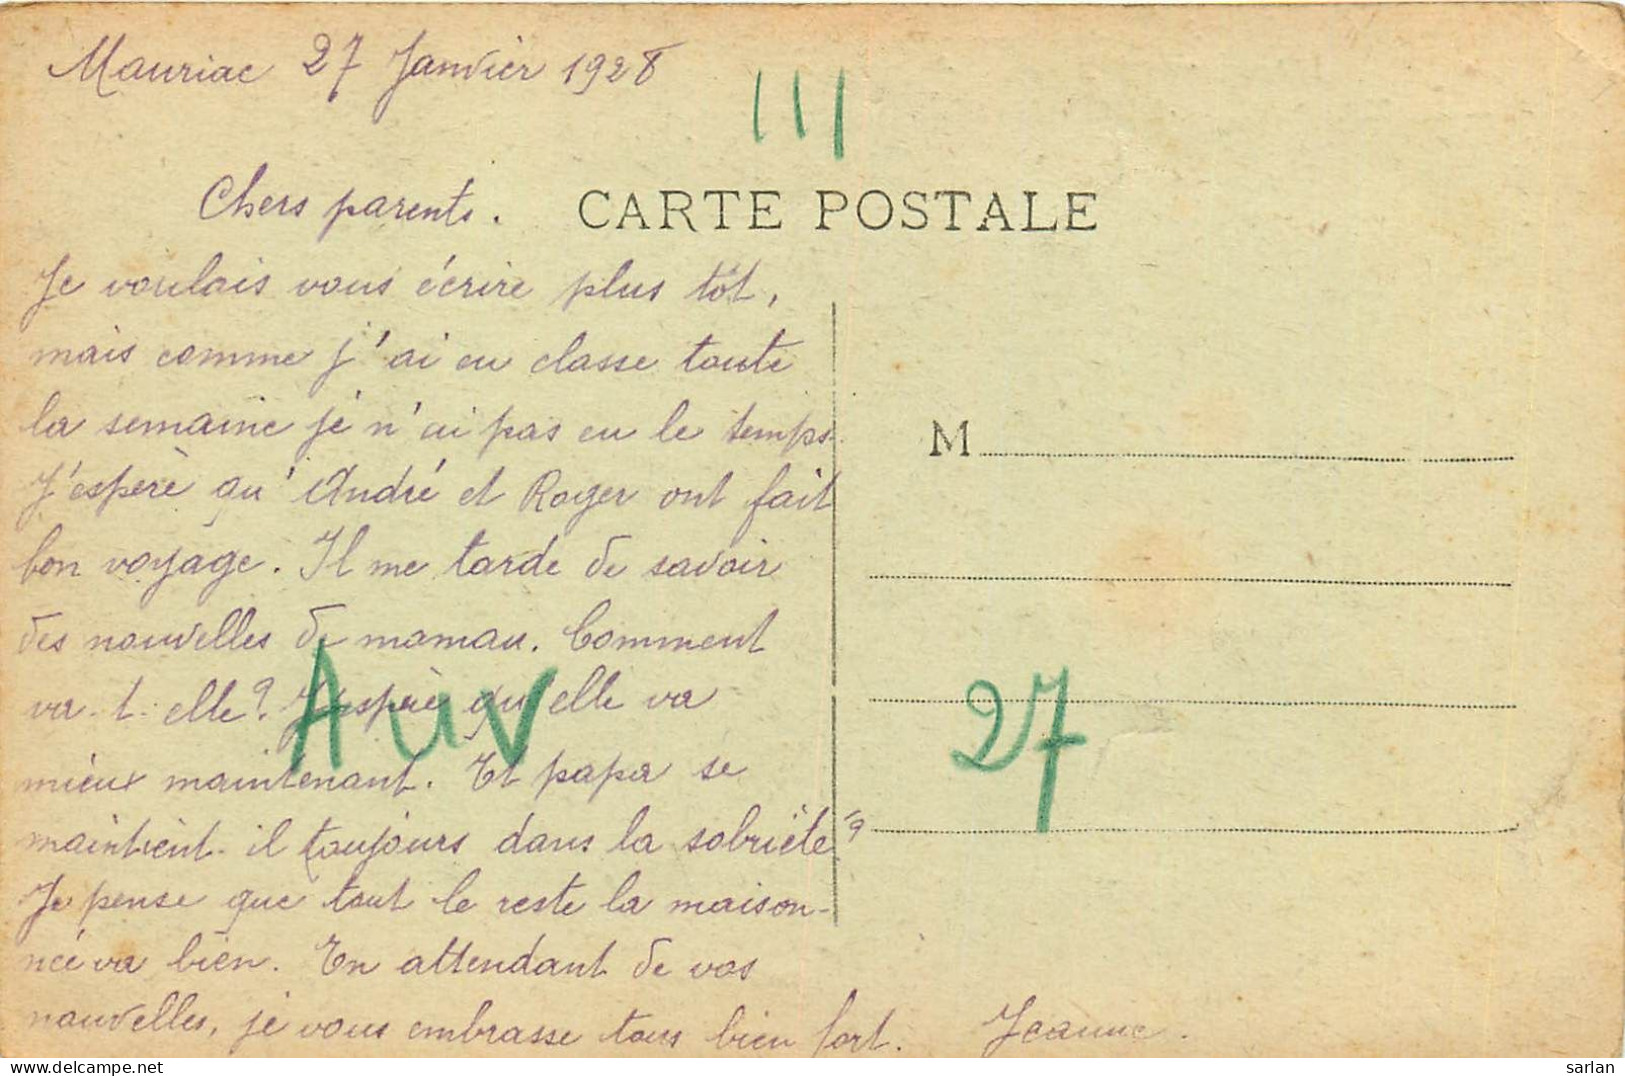 Mauriac 27 Janvier 1928
III
Chers parents.
CARTE POSTALE
Je voulais vous écrire plus tôt,
mais comme j'ai eu classe toute
la semaine je n'ai pas eu le temps.
J'espère qu'André et Roger ont fait
bon voyage. Il me tarde de savoir
des nouvelles de maman. Comment
va-t-elle? J'espère qu'elle va
mieux maintenant. Et papa se
maintient-il toujours dans la sobriété?
Je pense que tout le reste la maison-
née va bien. En attendant de vos
nouvelles, je vous embrasse tous bien fort. Jeanne.
M
Auv
27
sarlan